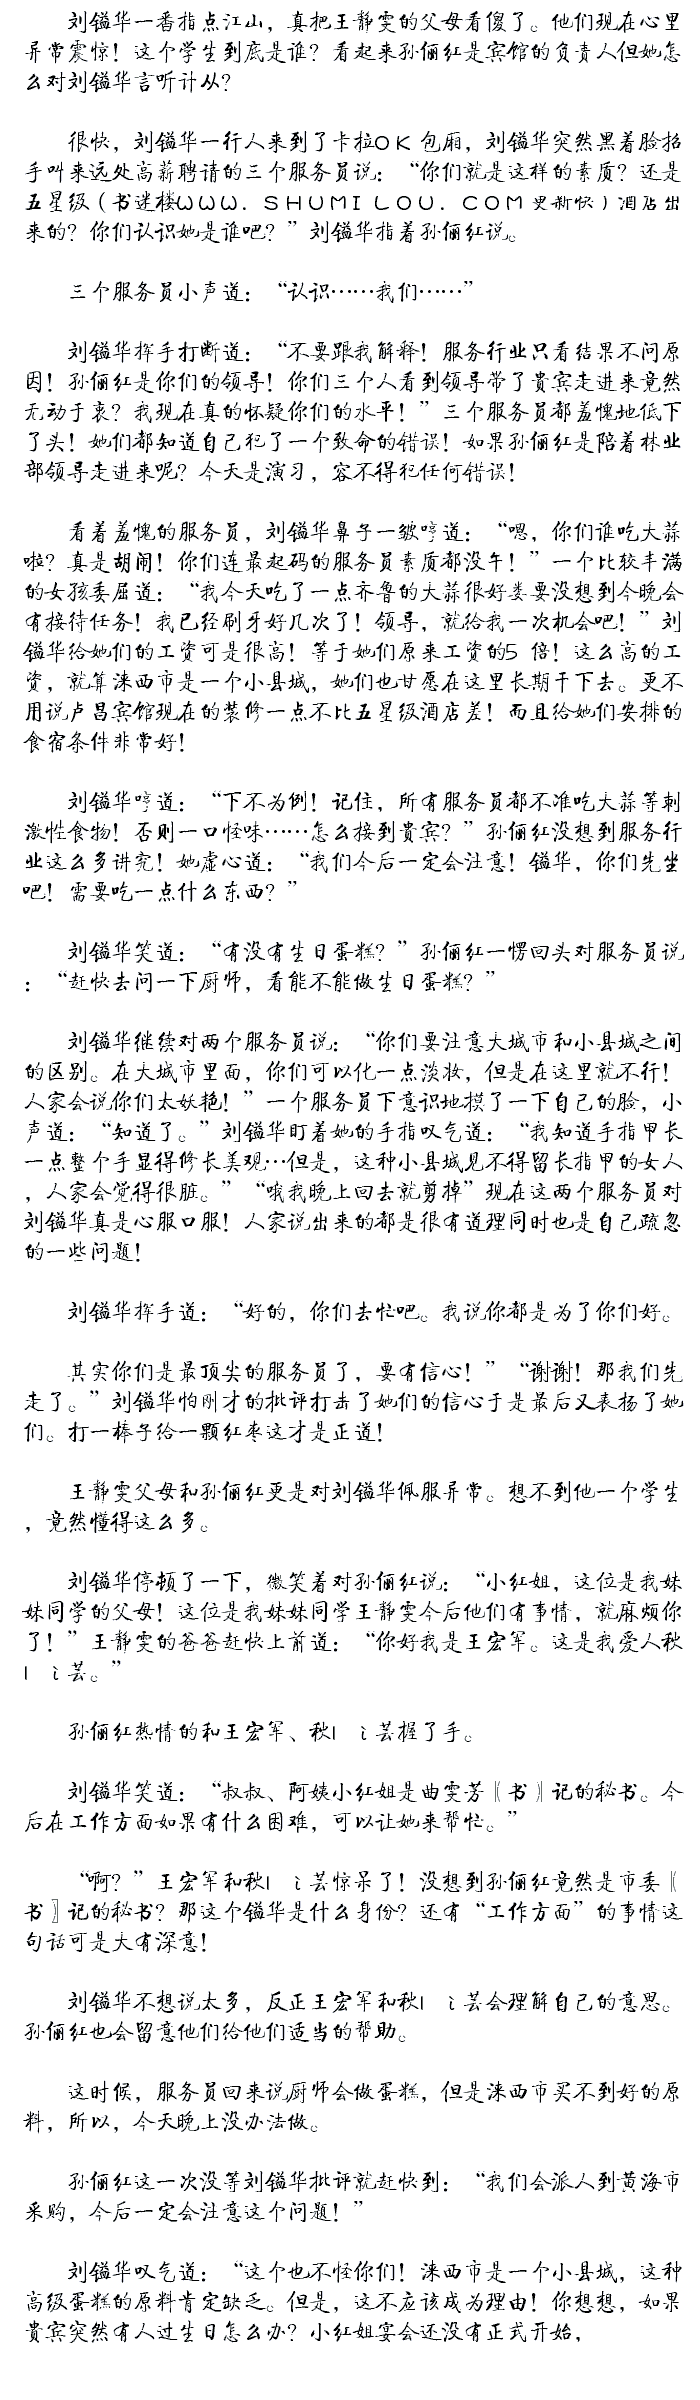 刘镒华一番指点江山，真把王静雯的父母看傻了。他们现在心里
异常震惊！这个学生到底是谁？看起来孙俪红是宾馆的负责人但她怎
么对刘镒华言听计从？
很快，刘镒华一行人来到了卡拉OK 包厢，刘镒华突然黑着脸招
手叫来远处高薪聘请的三个服务员说：“你们就是这样的素质？还是
五星级（书迷楼WWW．SHUMILOU．COM更新快）酒店出
来的？你们认识她是谁吧？”刘镒华指着孙俪红说。
三个服务员小声道：“认识……我们……”
刘镒华挥手打断道：“不要跟我解释！服务行业只看结果不问原
因！孙俪红是你们的领导！你们三个人看到领导带了贵宾走进来竟然
无动于衷？我现在真的怀疑你们的水平！”三个服务员都羞愧地低下
了头！她们都知道自己犯了一个致命的错误！如果孙俪红是陪着林业
部领导走进来呢？今天是演习，容不得犯任何错误！
看着羞愧的服务员，刘镒华鼻子一皱哼道：“嗯，你们谁吃大蒜
啦？真是胡闹！你们连最起码的服务员素质都没午！”一个比较丰满
的女孩委屈道：“我今天吃了一点齐鲁的大蒜很好娄要没想到今晚会
有接待任务！我已经刷牙好几次了！领导，就给我一次机会吧！”刘
镒华给她们的工资可是很高！等于她们原来工资的5 倍！这么高的工
资，就算涞西市是一个小县城，她们也甘愿在这里长期干下去。更不
用说卢昌宾馆现在的装修一点不比五星级酒店差！而且给她们安排的
食宿条件非常好！
刘镒华哼道：“下不为例！记住，所有服务员都不准吃大蒜等刺
激性食物！否则一口怪味……怎么接到贵宾？”孙俪红没想到服务行
业这么多讲究！她虚心道：“我们今后一定会注意！镒华，你们先坐
吧！需要吃一点什么东西？”
刘镒华笑道：“有没有生日蛋糕？”孙俪红一愣回头对服务员说
：“赶快去问一下厨师，看能不能做生日蛋糕？”
刘镒华继续对两个服务员说：“你们要注意大城市和小县城之间
的区别。在大城市里面，你们可以化一点淡妆，但是在这里就不行！
人家会说你们太妖艳！”一个服务员下意识地摸了一下自己的脸，小
声道：“知道了。”刘镒华盯着她的手指叹气道：“我知道手指甲长
一点整个手显得修长美观…但是，这种小县城见不得留长指甲的女人
，人家会觉得很脏。”“哦我晚上回去就剪掉”现在这两个服务员对
刘镒华真是心服口服！人家说出来的都是很有道理同时也是自己疏忽
的一些问题！
刘镒华挥手道：“好的，你们去忙吧。我说你都是为了你们好。
其实你们是最顶尖的服务员了，要有信心！”“谢谢！那我们先
走了。”刘镒华怕刚才的批评打击了她们的信心于是最后又表扬了她
们。打一棒子给一颗红枣这才是正道！
王静雯父母和孙俪红更是对刘镒华佩服异常。想不到他一个学生
，竟然懂得这么多。
刘镒华停顿了一下，微笑着对孙俪红说：“小红姐，这位是我妹
妹同学的父母！这位是我妹妹同学王静雯今后他们有事情，就麻烦你
了！”王静雯的爸爸赶快上前道：“你好我是王宏军。这是我爱人秋
l ミ芸。”
孙俪红热情的和王宏军、秋l ミ芸握了手。
刘镒华笑道：“叔叔、阿姨小红姐是曲雯芳〖书〗记的秘书。今
后在工作方面如果有什么困难，可以让她来帮忙。”
“啊？”王宏军和秋l ミ芸惊呆了！没想到孙俪红竟然是市委〖
书〗记的秘书？那这个镒华是什么身份？还有“工作方面”的事情这
句话可是大有深意！
刘镒华不想说太多，反正王宏军和秋l ミ芸会理解自己的意思。
孙俪红也会留意他们给他们适当的帮助。
这时候，服务员回来说厨师会做蛋糕，但是涞西市买不到好的原
料，所以，今天晚上没办法做。
孙俪红这一次没等刘镒华批评就赶快到：“我们会派人到黄海市
采购，今后一定会注意这个问题！”
刘镒华叹气道：“这个也不怪你们！涞西市是一个小县城，这种
高级蛋糕的原料肯定缺乏。但是，这不应该成为理由！你想想，如果
贵宾突然有人过生日怎么办？小红姐宴会还没有正式开始，